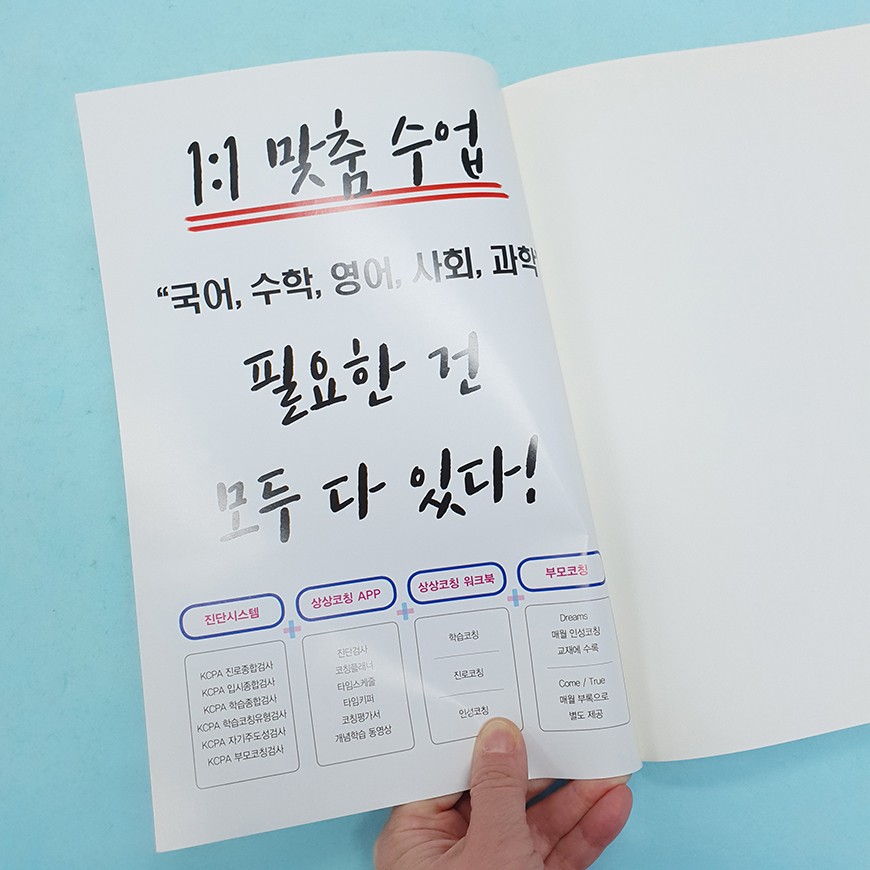 1:1 맞춤 수업
“국어, 수학, 영어, 사회, 과학”
필요한 건
모두 다 있다!
진단시스템
KCPA 진로종합검사
KCPA 입시종합검사
KCPA 학습종합검사
KCPA 학습코칭유형검사
KCPA 자기주도성검사
KCPA 부모코칭검사
+
상상코칭 APP
진단검사
코칭플래너
타임스케줄
타임키퍼
코칭평가서
개념학습 동영상
+
상상코칭 워크북
학습코칭
진로코칭
인성코칭
+
부모코칭
Dreams
매월 인성코칭
교재에 수록
Come / True
매월 부록으로
별도 제공